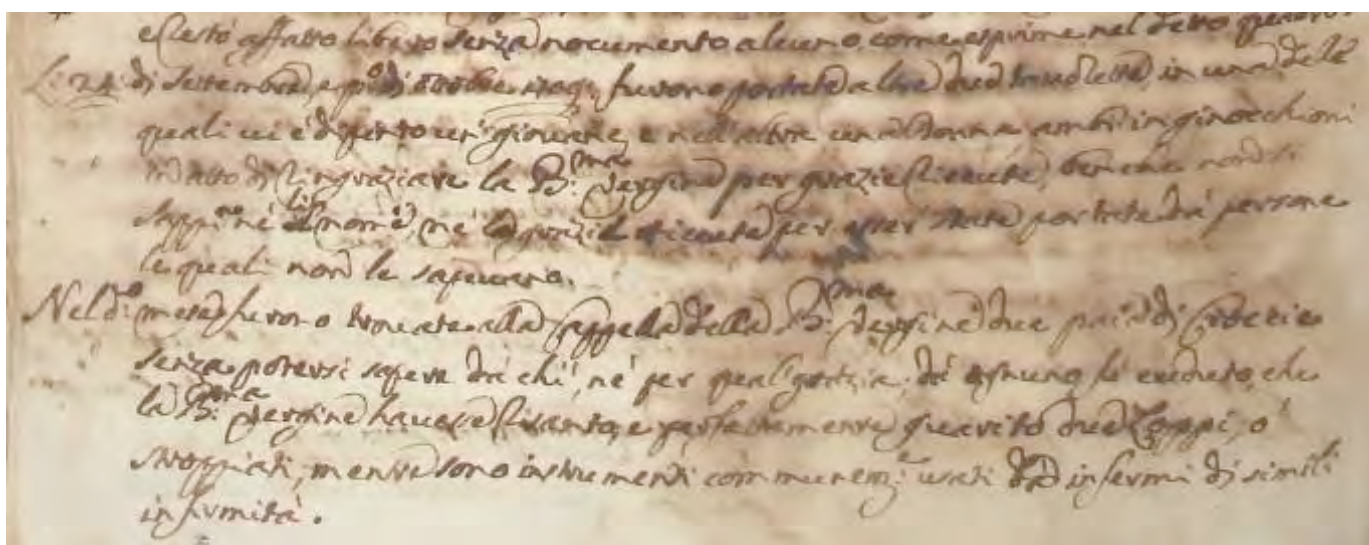 e restò affatto libero senza nocumento alcuno, come espirime nel detto
Li 24 di Settembre, e p.º di Ottobre 1709 furono portate altre due tavolette, in una dele
quali vi é dipinto un' giovane, e nell'altra una donna, ambi inginocchioni
in atto di ringraziare la B.ma Vergine per grazie ricevute, benche non si
sappi né il nome, né la grazia ricevuta per esser state portate dà persone
le quali non le sapevano.
Nel d.º mese furono trovate alla Cappella della B.ma Vergine due paia di
senza potersi sapere dà chi, né per qual' grazia; dà ognuno fù creduto, che
la B.ma Vergine havesse risanato, e perfettamente guarito due Zoppi, ò
stroppiati, mentre sono instrumenti communem.e usati dà infermi di simili
infirmità.